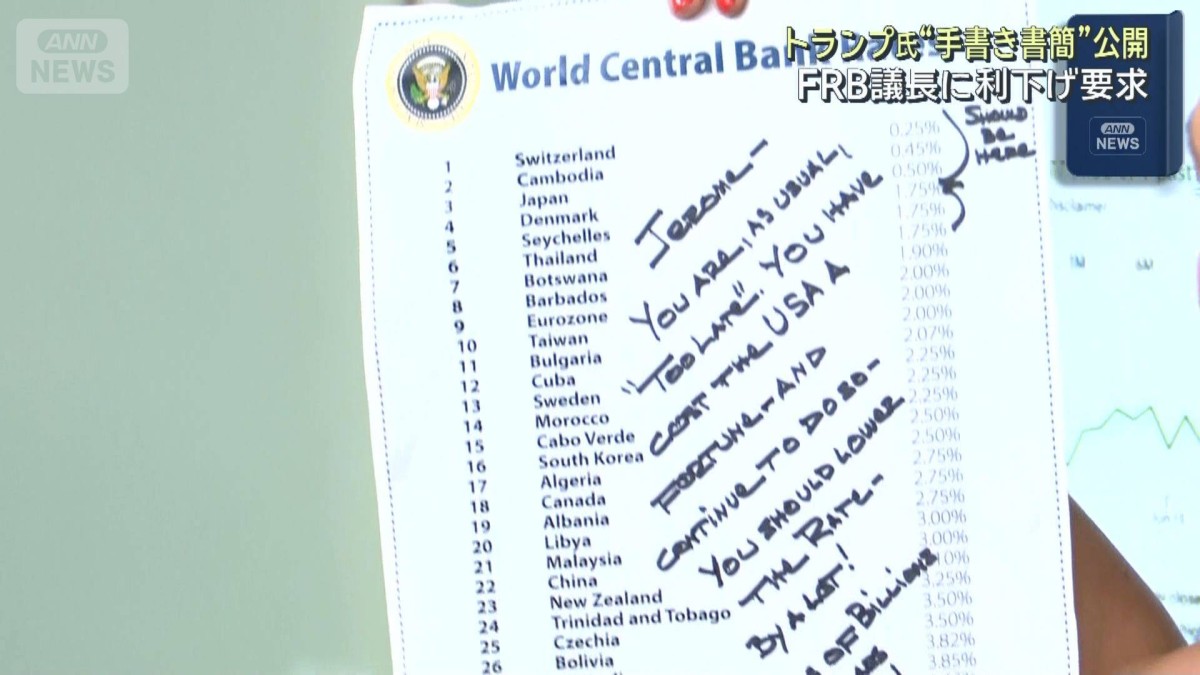 ANN
NEWS
トランプ氏“手書き書簡”公開
FRB議長に利下げ要求
ANN
NEWS
World Central Bank
1 Switzerland 0.25%
2 Cambodia 0.45%
3 Japan 0.50%
4 Denmark 1.75%
5 Seychelles 1.75%
6 Thailand 1.75%
7 Botswana 1.90%
8 Barbados 2.00%
9 Eurozone 2.00%
10 Taiwan 2.00%
11 Bulgaria 2.07%
12 Cuba 2.25%
13 Sweden 2.25%
14 Morocco 2.25%
15 Cabo Verde 2.50%
16 South Korea 2.50%
17 Algeria 2.75%
18 Canada 2.75%
19 Albania 2.75%
20 Libya 3.00%
21 Malaysia 3.00%
22 China 10%
23 New Zealand 3.25%
24 Trinidad and Tobago 3.50%
25 Czechia 3.50%
26 Bolivia 3.82%
3.85%
SHOULD
BE
HERE
JEROME-
YOU ARE, AS USUAL,
"TOO LATE". YOU HAVE
COST THE USA A
FORTUNE - AND
CONTINUE TO DO SO -
YOU SHOULD LOWER
THE RATE -
BY A LOT!
OF BILLIONS